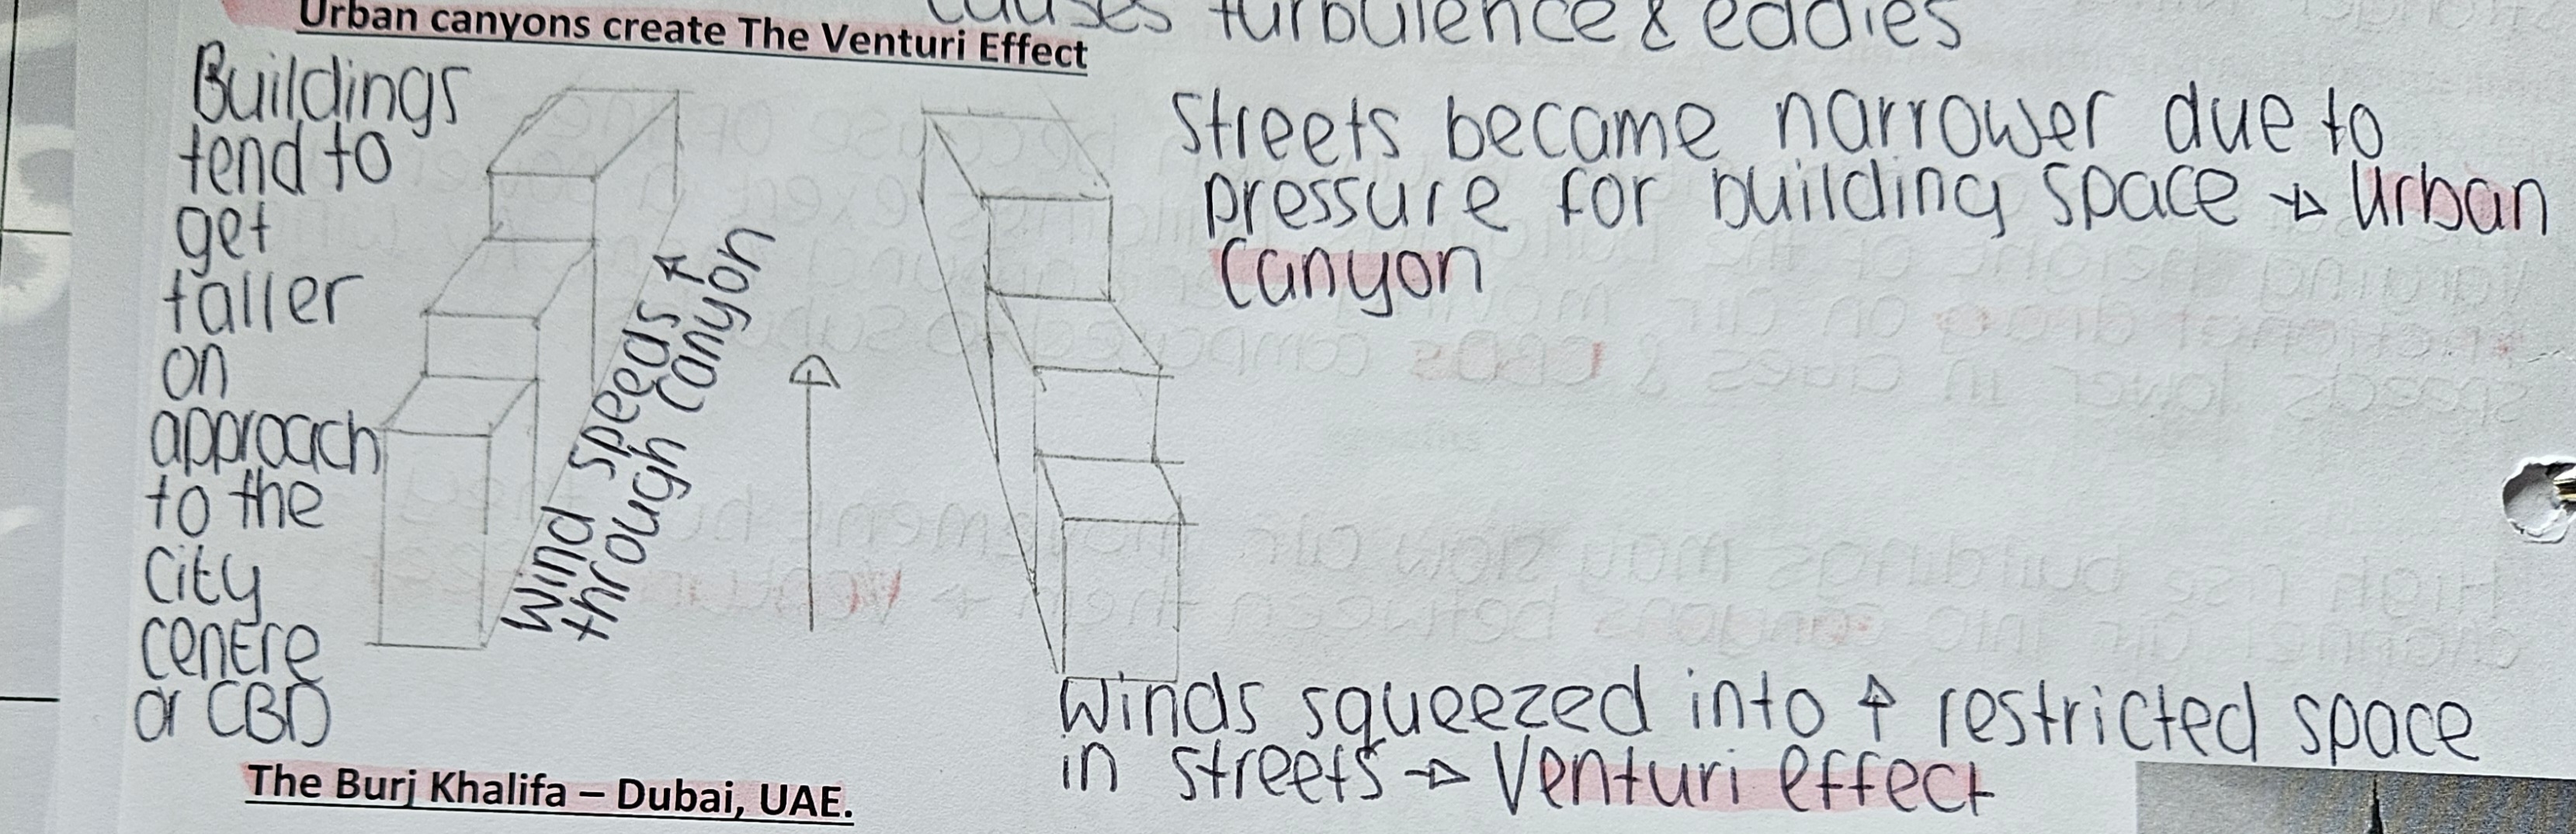 causes turbulence & eddies
Urban canyons create The Venturi Effect
Buildings
tend to
get
taller
on
approach
to the
city
centre
or CBD
Wind speeds ↑
through canyon
Streets become narrower due to
pressure for building space → Urban
Canyon
Winds squeezed into ↑ restricted space
in streets → Venturi effect
The Burj Khalifa – Dubai, UAE.